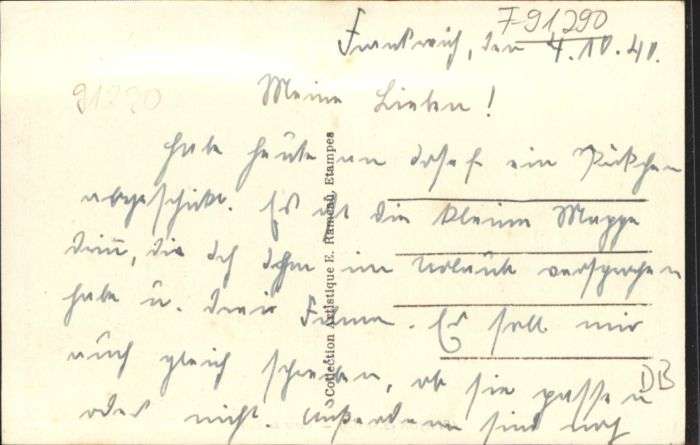 F-91290
Frankreich, den 4.10.40.
91290
Meine Lieben!
Habe heute an Josef ein Päckchen
abgeschickt. Es ist die kleine Mappe
drin, die ich ihm im Urlaub versprochen
habe u. drei Filme. Er soll mir
auch gleich schreiben, ob sie passen
oder nicht. Außerdem sind noch
DB
Collection Artistique E. Rameau, Etampes